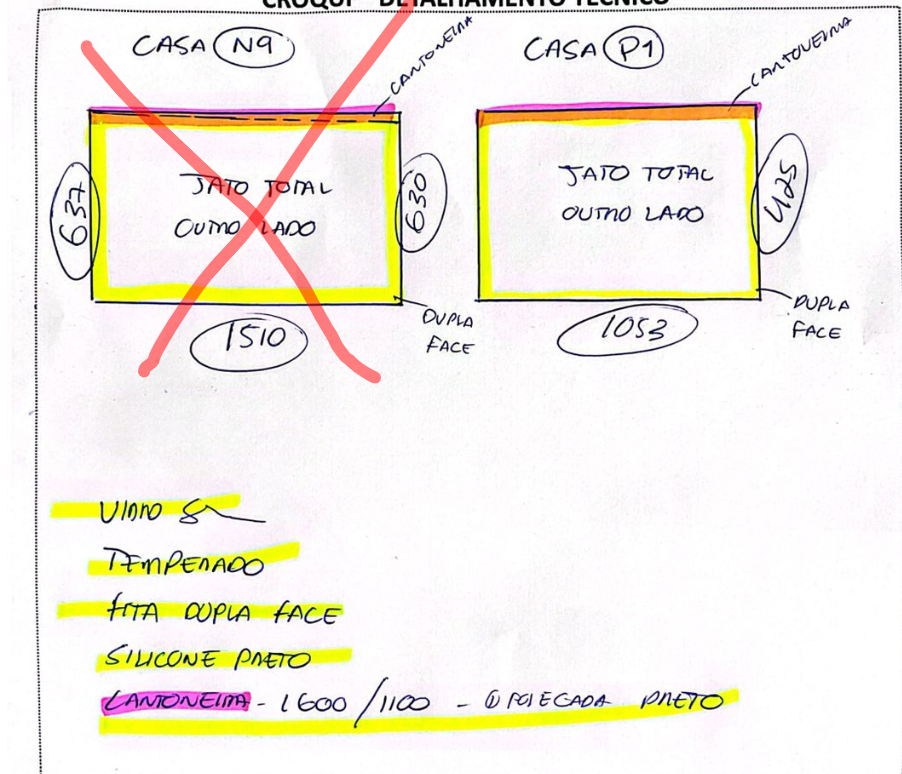 CROQUI - DETALHAMENTO TÉCNICO
CASA N9
CANTONEIRA
637
JATO TOTAL
OUTRO LADO
630
1510
DUPLA
FACE
CASA P1
CANTONEIRA
JATO TOTAL
OUTRO LADO
425
1053
DUPLA
FACE
VIDRO 8
TEMPERADO
FITA DUPLA FACE
SILICONE PRETO
CANTONEIRA - 1600/1100 - 1 POLEGADA PRETO